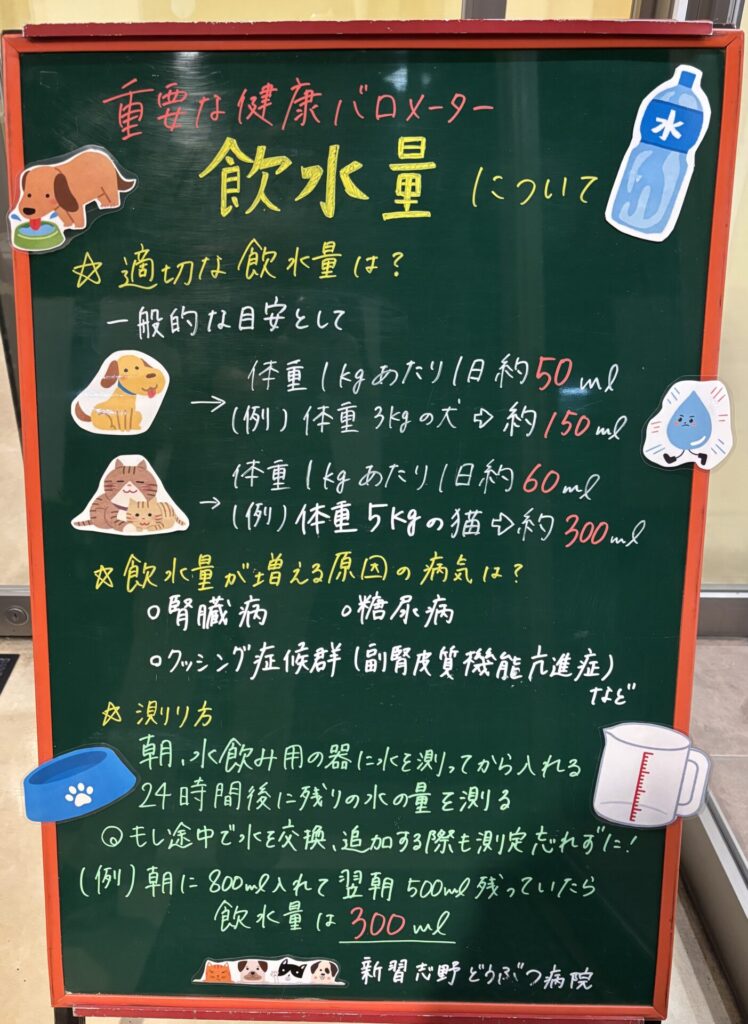 重要な健康バロメーター
飲水量について
水
☆適切な飲水量は?
一般的な目安として
→体重1kgあたり1日約50ml
(例)体重3kgの犬⇨約150ml
→体重1kgあたり1日約60ml
(例)体重5kgの猫⇨約300ml
☆飲水量が増える原因の病気は?
○腎臓病 ○糖尿病
○クッシング症候群(副腎皮質機能亢進症)
など
☆測り方
朝、水飲み用の器に水を測ってから入れる
24時間後に残りの水の量を測る
◎もし途中で水を交換、追加する際も測定忘れずに!
(例)朝に800ml入れて翌朝500ml残っていたら
飲水量は300ml
新習志野どうぶつ病院